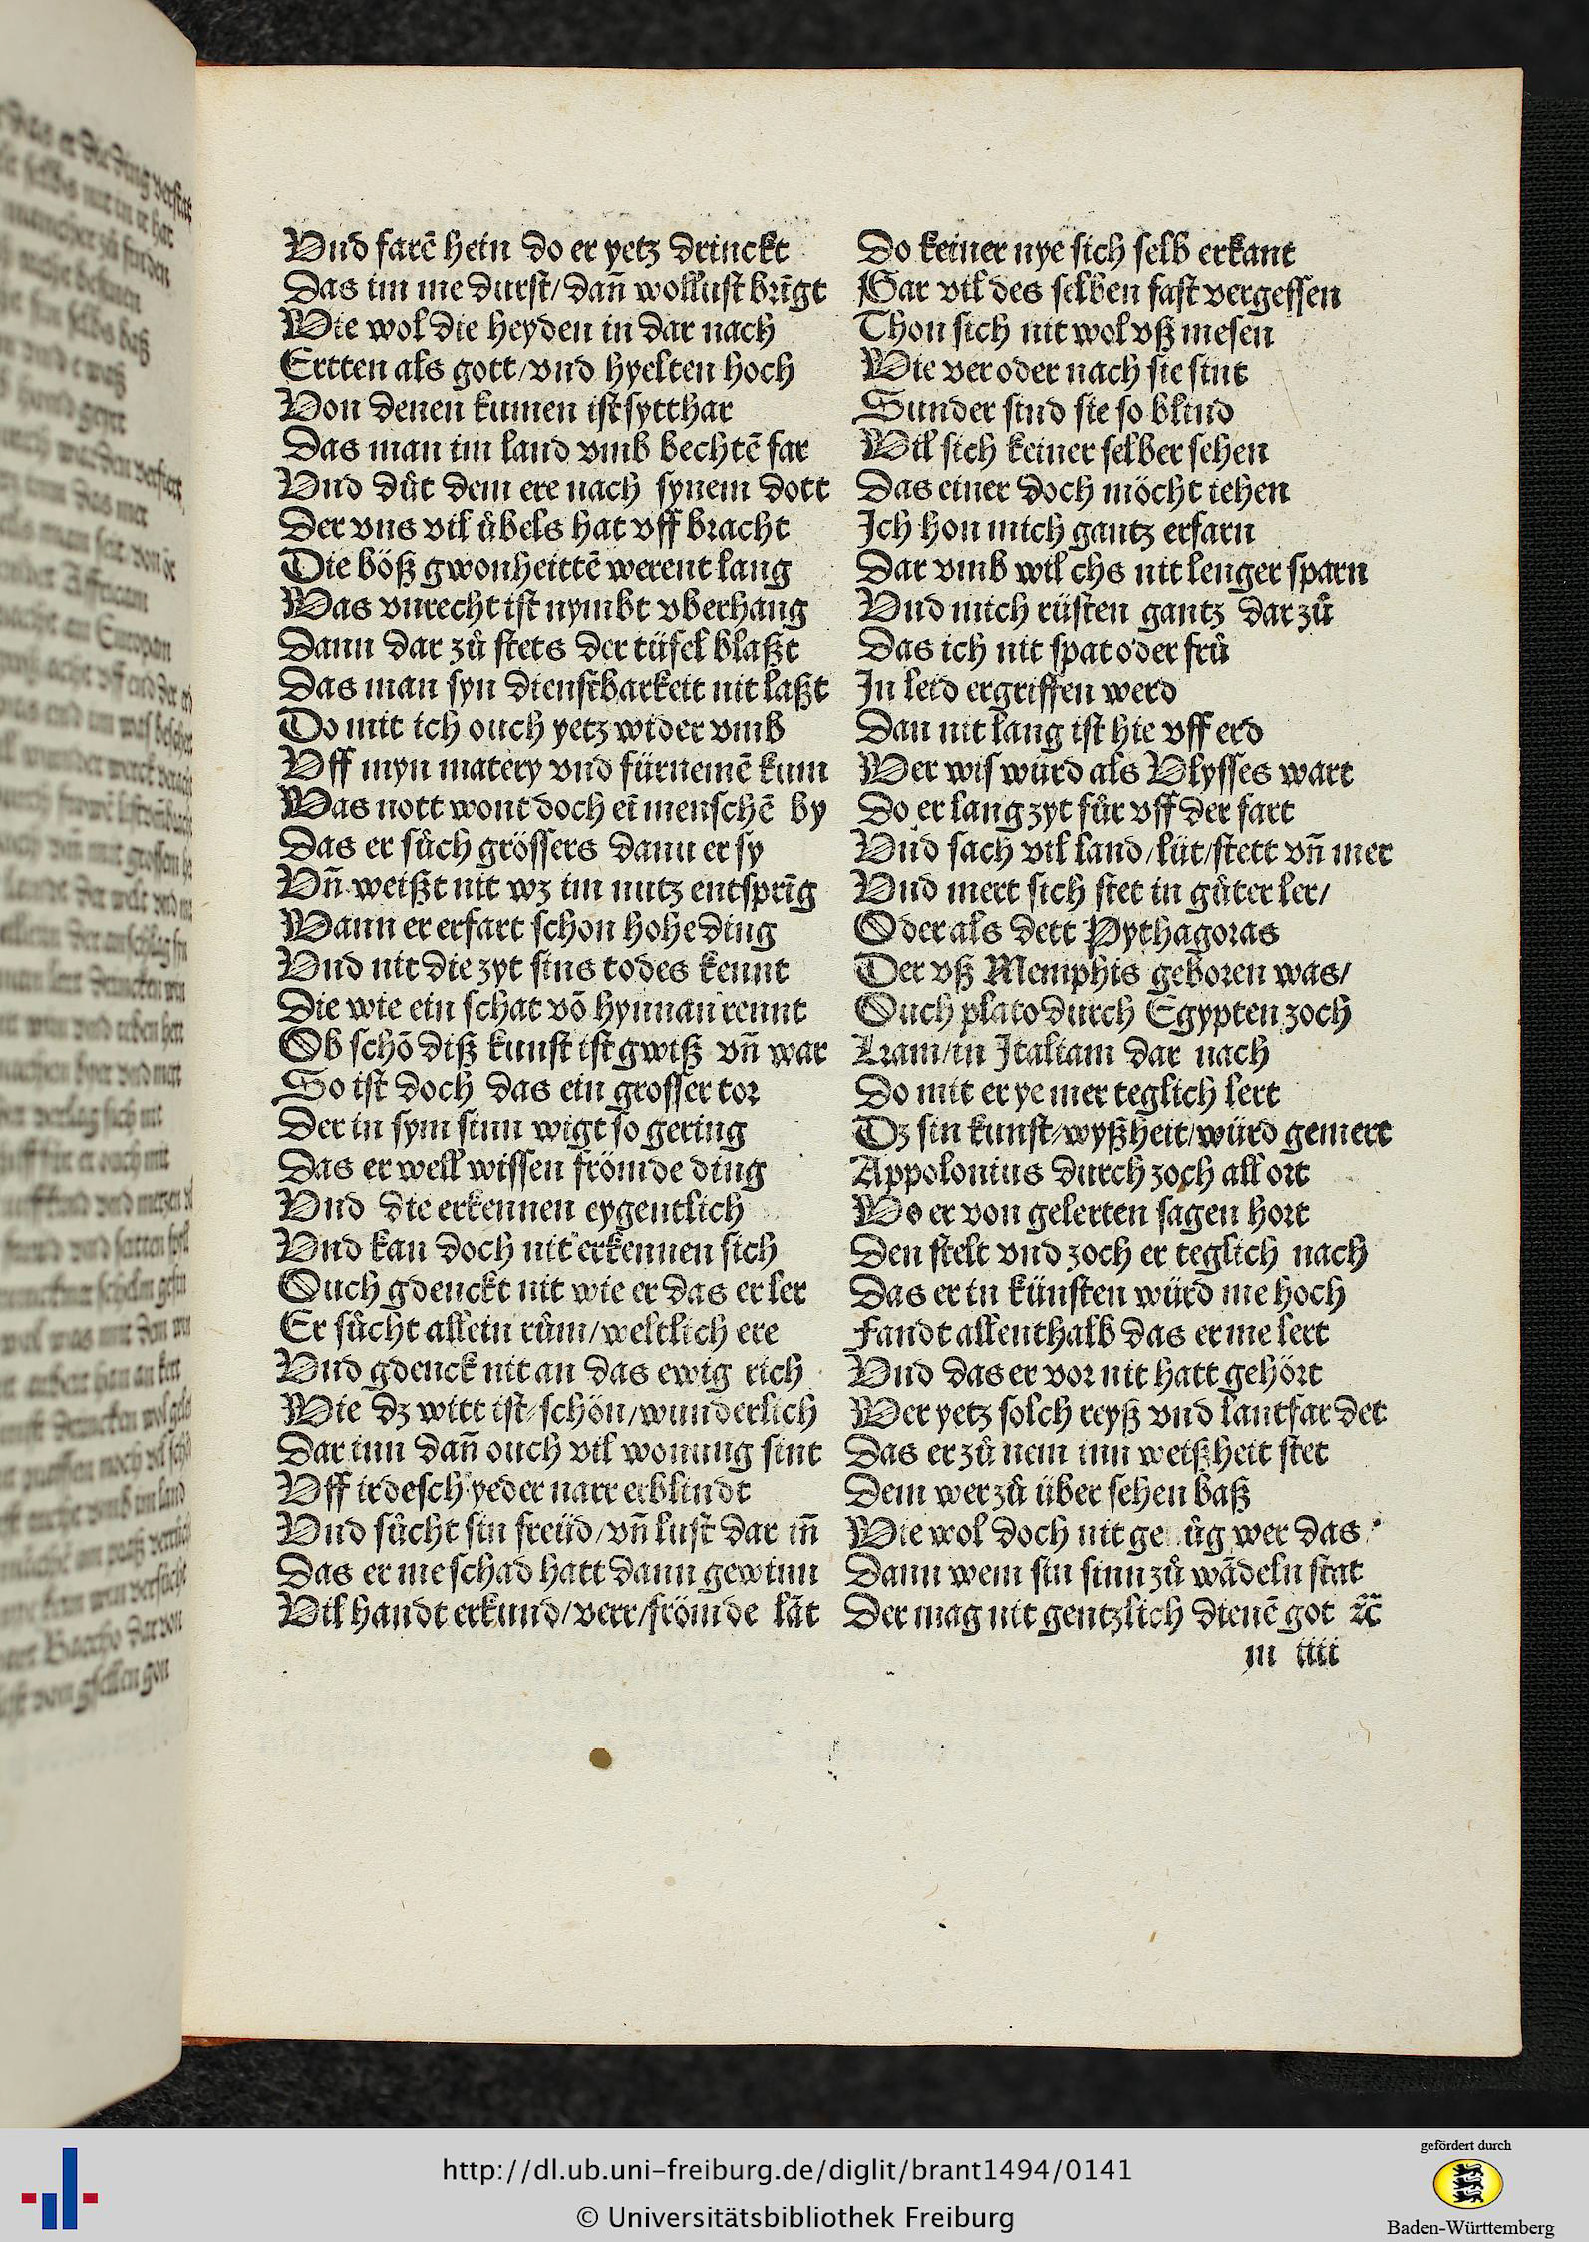 Vnd farē hein do er yetz drinckt
Das im me durst/ dañ wollust brīgt
Wie wol die heyden in dar nach
Ertten als gott/ vnd hyelten hoch
Von denen kumen ist sytthar
Das man im land vmb bechtē far
Vnd důt dem ere nach synem dott
Der vns vil übels hat vff bracht
Die böß gwonheittē werent lang
Was vnrecht ist nymbt vberhang
Dann dar zů stets der tüfel blaßt
Das man syn dienstbarkeit nit laßt
Do mit ich ouch yetz wider vmb
Vff myn matery vnd fürnemē kum
Was nott wont doch eī menschē by
Das er sůch grössers dann er sy
Vñ weißt nit wz im nutz entsprīg
Wann er erfart schon hohe ding
Vnd nit die zyt sins todes kennt
Die wie ein schat vō hynnan rennt
Ob schō diß kunst ist gwiß vñ war
So ist doch das ein grosser tor
Der in sym sinn wigt so gering
Das er well wissen frömde ding
Vnd die erkennen eygentlich
Vnd kan doch nit erkennen sich
Ouch gdenckt nit wie er das er ler
Er sůcht allein rům/ weltlich ere
Vnd gdenck nit an das ewig rich
Wie dz witt ist/ schön/ wunderlich
Dar inn dañ ouch vil wonung sint
Vff irdesch yeder narr erblindt
Vnd sůcht sin freüd/ vñ lust dar iñ
Das er me schad hatt dann gewinn
Vil handt erkund/ verr/ frömde lāt
Do keiner nye sich selb erkant
Gar vil des selben fast vergessen
Thon sich nit wol vß mesen
Wie ver oder nach sie sint
Sunder sind sie so blind
Wil sich keiner selber sehen
Das einer doch möcht iehen
Ich hon mich gantz erfarn
Dar vmb wil chs nit lenger sparn
Vnd mich rüsten gantz dar zů
Das ich nit spat oder frů
In leid ergriffen werd
Dan nit lang ist hie vff erd
Wer wis würd als Vlysses wart
Do er lang zyt fůr vff der fart
Vnd sach vil land/ lüt/ stett vñ mer
Vnd mert sich stet in gůter ler/
Oder als dett Pythagoras
Der vß Memphis geboren was/
Ouch plato durch Egypten zoch
Kam/ in Italiam dar nach
Do mit er ye mer teglich lert
Dz sin kunst/ wyßheit/ würd gemert
Appolonius durch zoch all ort
Wo er von gelerten sagen hort
Den stelt vnd zoch er teglich nach
Das er in künsten würd me hoch
Fandt allenthalb das er me lert
Vnd das er vor nit hatt gehört
Wer yetz solch reyß vnd lantfar det
Das er zů nem inn weißheit stet
Dem wer zů über sehen baß
Wie wol doch nit ge ůg wer das
Dann wem sin sinn zů wādeln stat
Der mag nit gentzlich dienē got ⁊c̄
m iiii
http://dl.ub.uni-freiburg.de/diglit/brant1494/0141
© Universitätsbibliothek Freiburg
gefördert durch
Baden-Württemberg